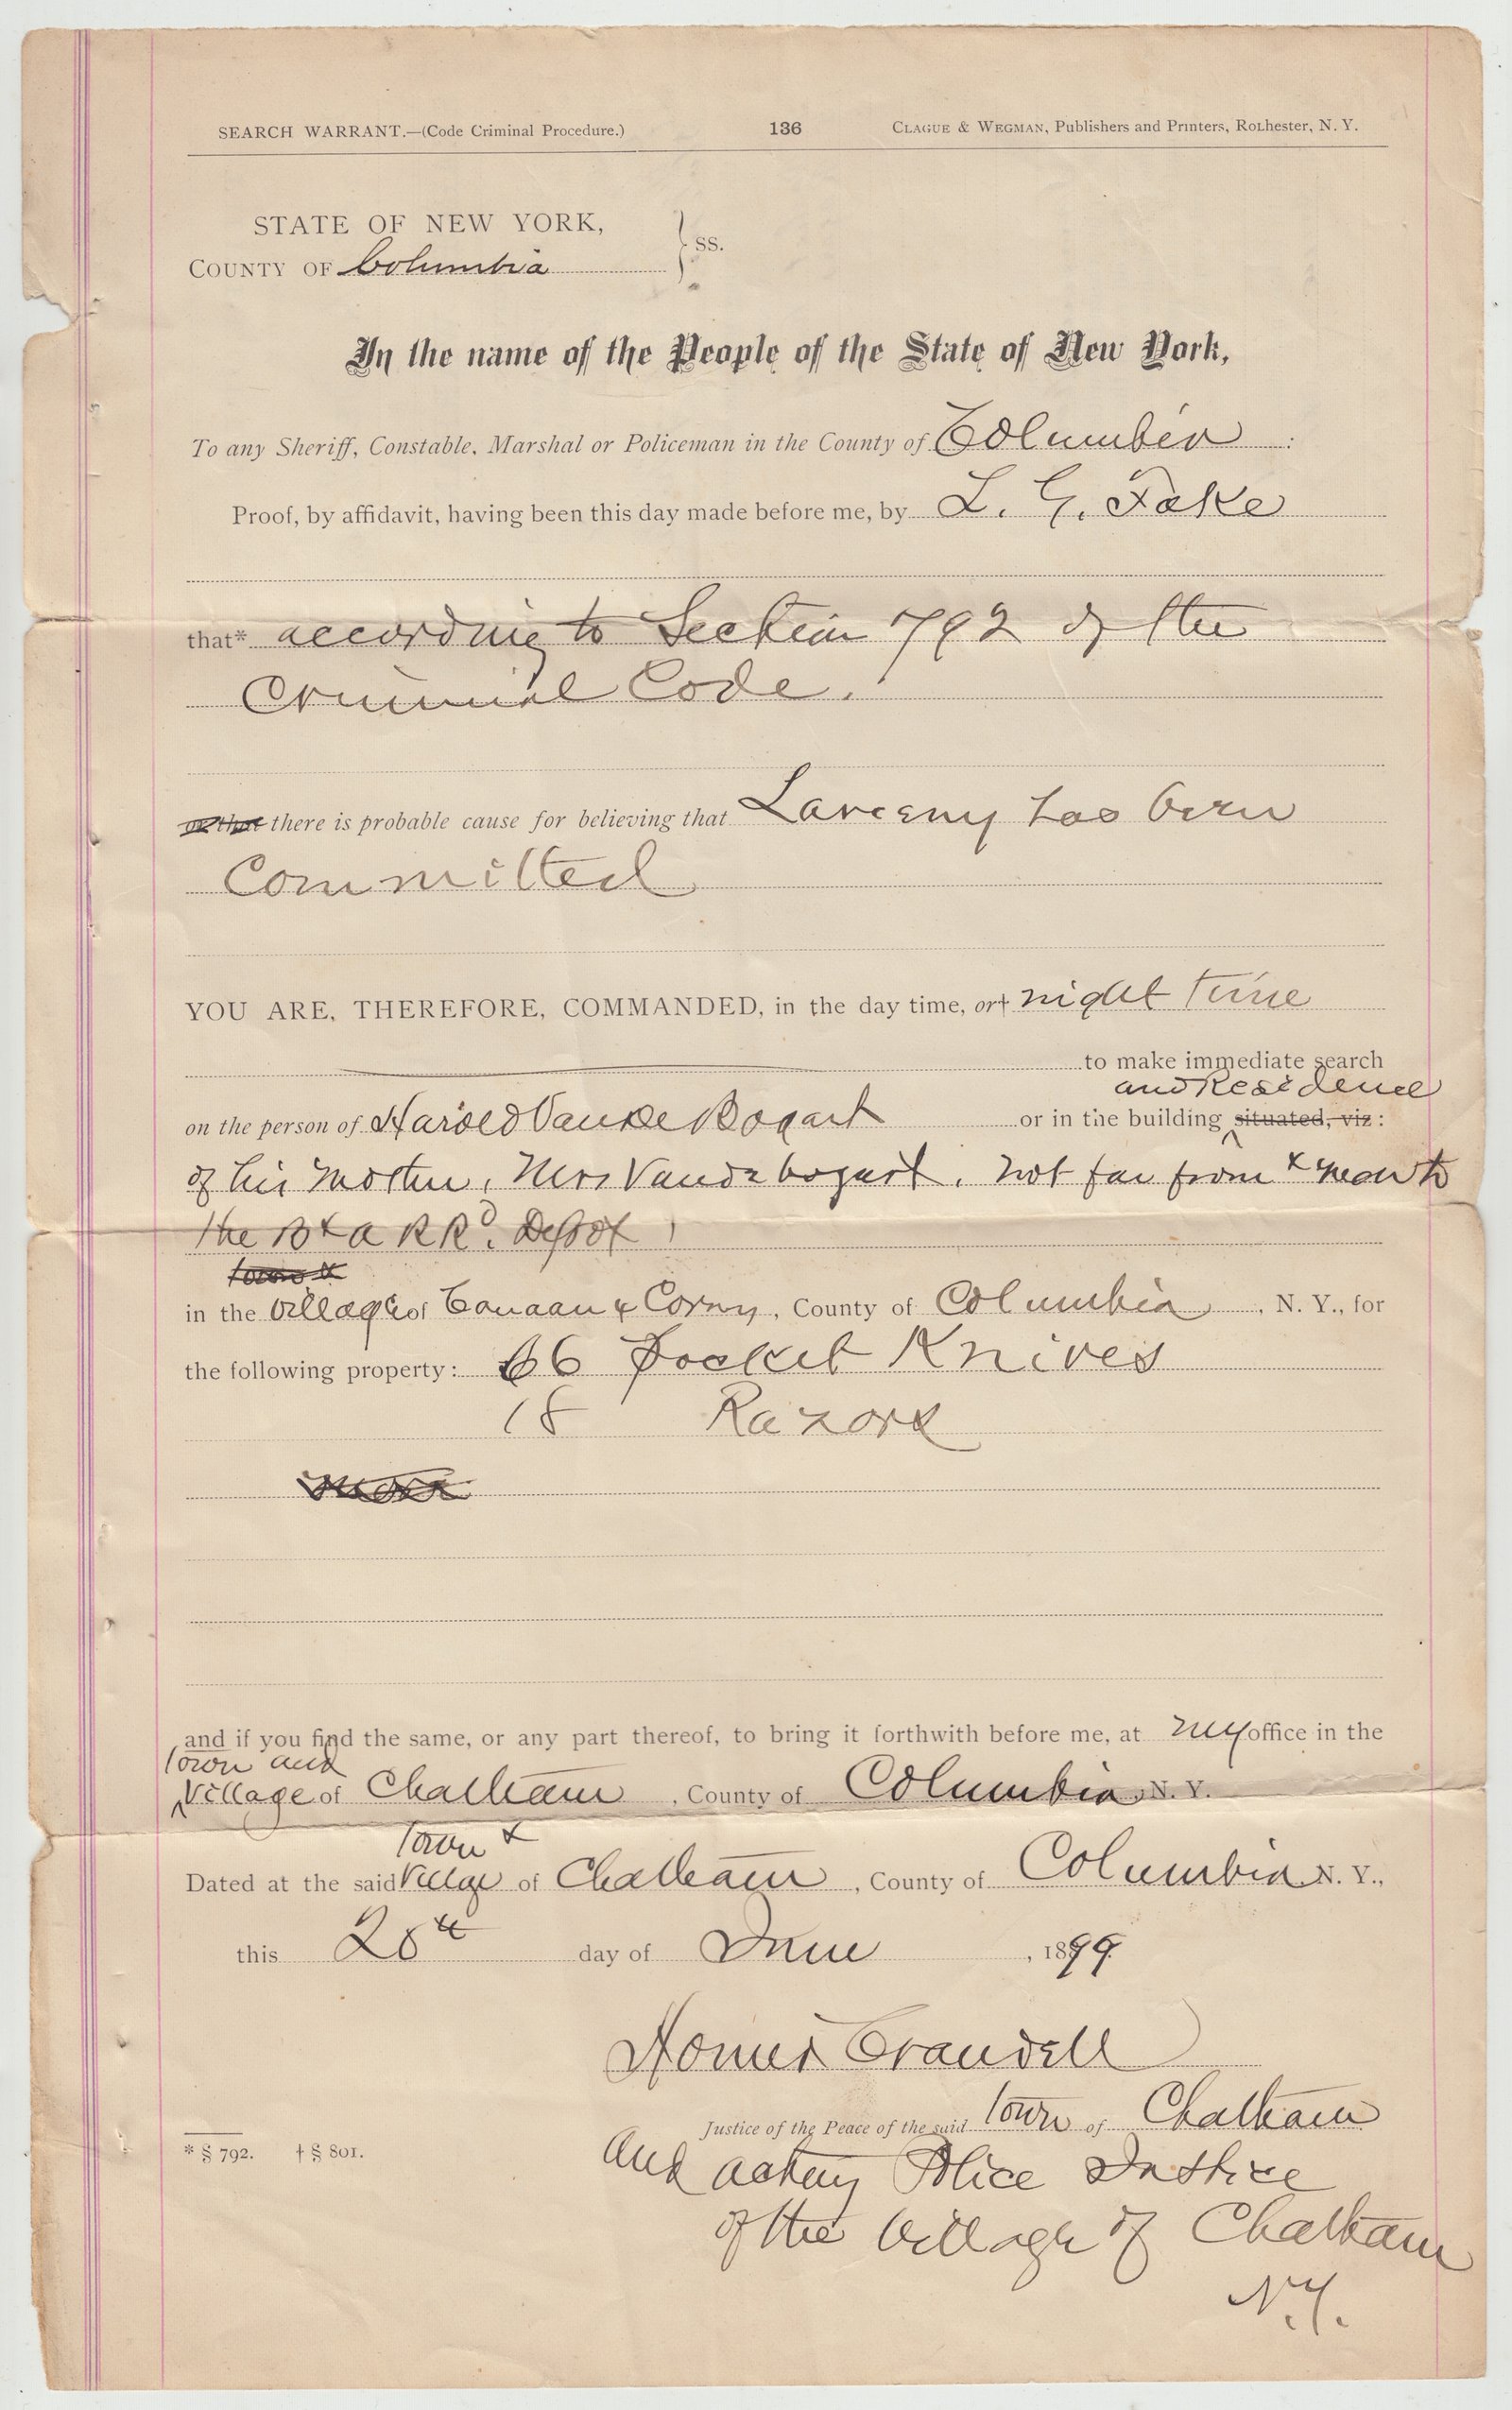 SEARCH WARRANT.—(Code Criminal Procedure.) 136 CLAGUE & WEGMAN, Publishers and Printers, Rochester, N. Y.
STATE OF NEW YORK,
COUNTY OF Columbia } ss.
In the name of the People of the State of New York,
To any Sheriff, Constable, Marshal or Policeman in the County of Columbia :
Proof, by affidavit, having been this day made before me, by L. G. Fake
that* according to Section 792 of the
Criminal Code.
or that there is probable cause for believing that Larceny has been
Committed
YOU ARE, THEREFORE, COMMANDED, in the day time, or† night time
to make immediate search
and Residence
on the person of Harold VandeBogart or in the building situated, viz :
of his Mother, Mrs Vandebogart, not far from & near to
the B & A RRd. Depot
Town &
in the Village of Canaan & , County of Columbia , N. Y., for
the following property: 66 Pocket Knives
18 Razors
and if you find the same, or any part thereof, to bring it forthwith before me, at my office in the
Town and
Village of Chatham , County of Columbia, N. Y.
Town &
Dated at the said Village of Chatham , County of Columbia, N. Y.,
this 28th day of June , 1899
Homer Crandell
Justice of the Peace of the said Town of Chatham
* § 792. † § 801.
and acting Police Justice
of the Village of Chatham
N.Y.